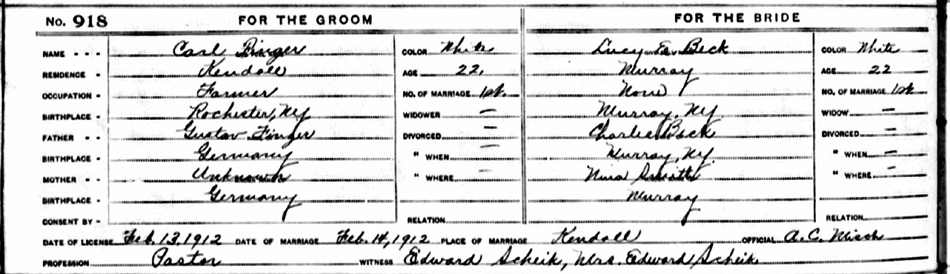 No. 918 FOR THE GROOM FOR THE BRIDE
NAME - - - Carl Finger COLOR White Lucy E. Beck COLOR White
RESIDENCE - Kendall AGE 22. Murray AGE 22
OCCUPATION - Farmer NO. OF MARRIAGE 1st. None NO. OF MARRIAGE 1st
BIRTHPLACE - Rochester, NY WIDOWER - Murray, NY WIDOW -
FATHER - Gustav Finger DIVORCED - Charlie Beck DIVORCED -
BIRTHPLACE - Germany " WHEN - Murray, NY. " WHEN -
MOTHER - Unknown " WHERE - Nina " WHERE -
BIRTHPLACE - Germany Murray
CONSENT BY - RELATION RELATION
DATE OF LICENSE Feb. 13, 1912 DATE OF MARRIAGE Feb. 14, 1912 PLACE OF MARRIAGE Kendall OFFICIAL A. C. Misch
PROFESSION Pastor WITNESS Edward Scheik, Mrs. Edward Scheik